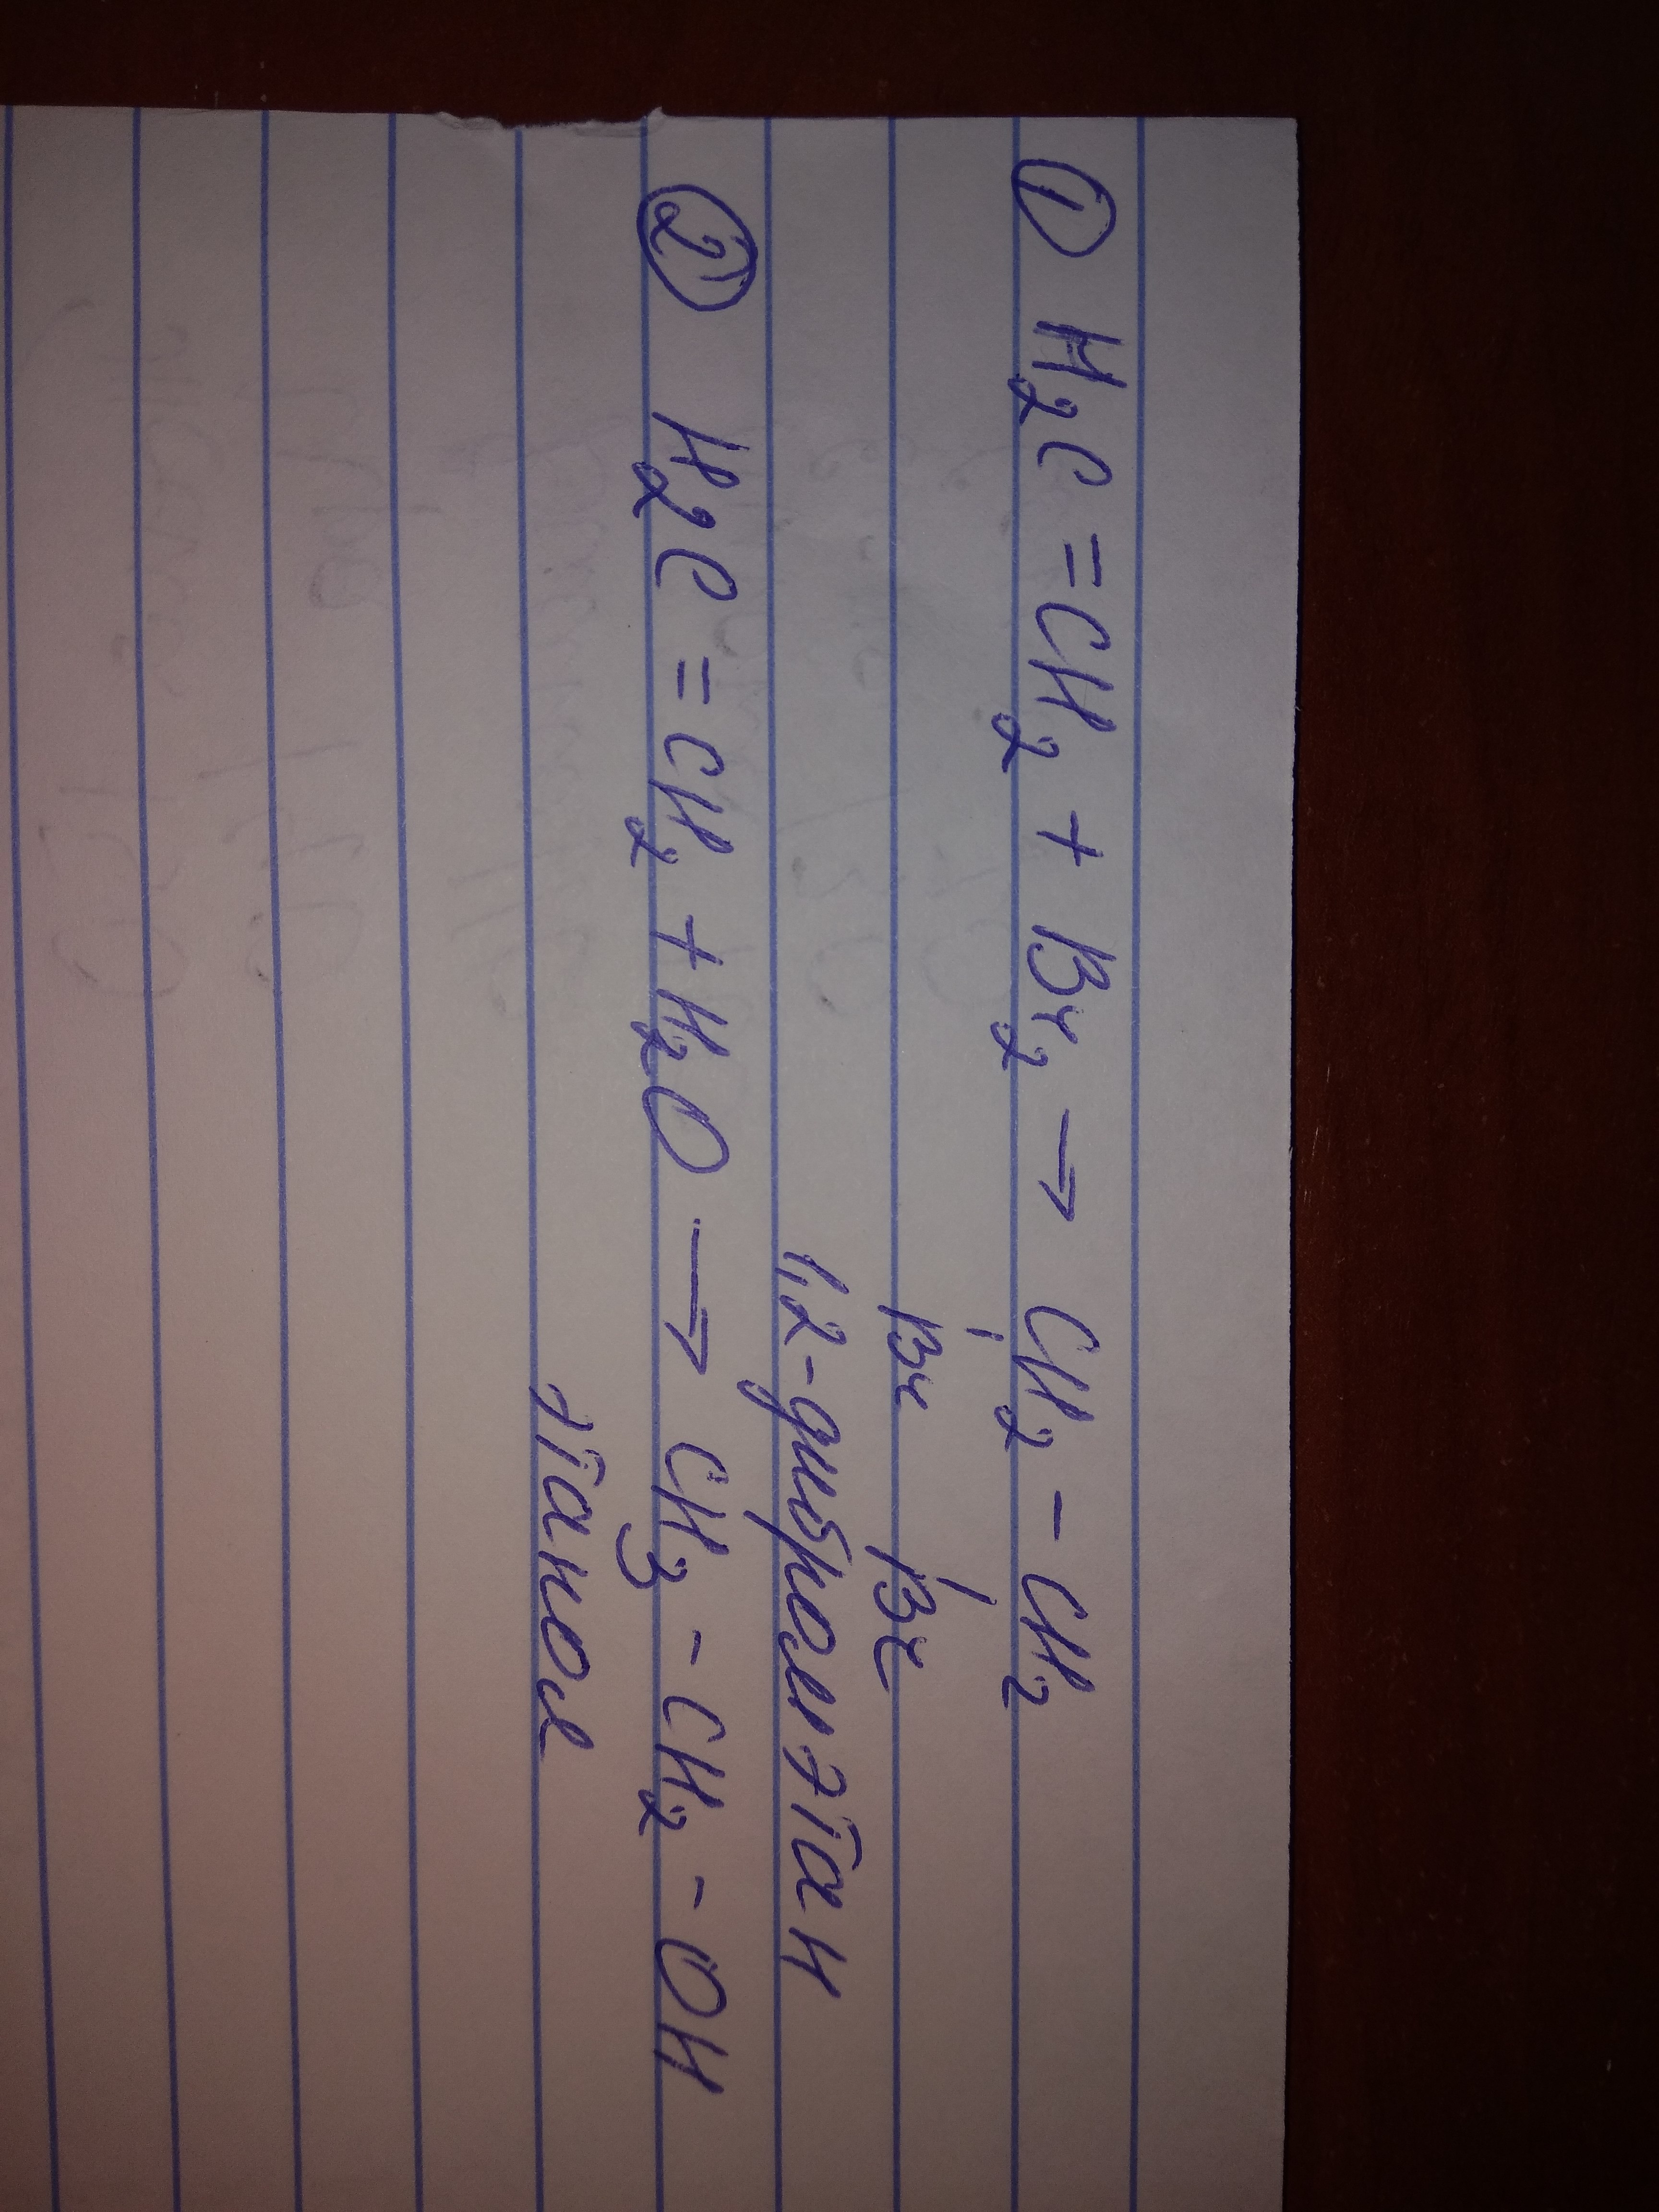 ① H₂C = CH₂ + Br₂ → CH₂ - CH₂
Br Br
1,2-дибромэтан
② H₂C = CH₂ + H₂O → CH₃ - CH₂ - OH
этанол